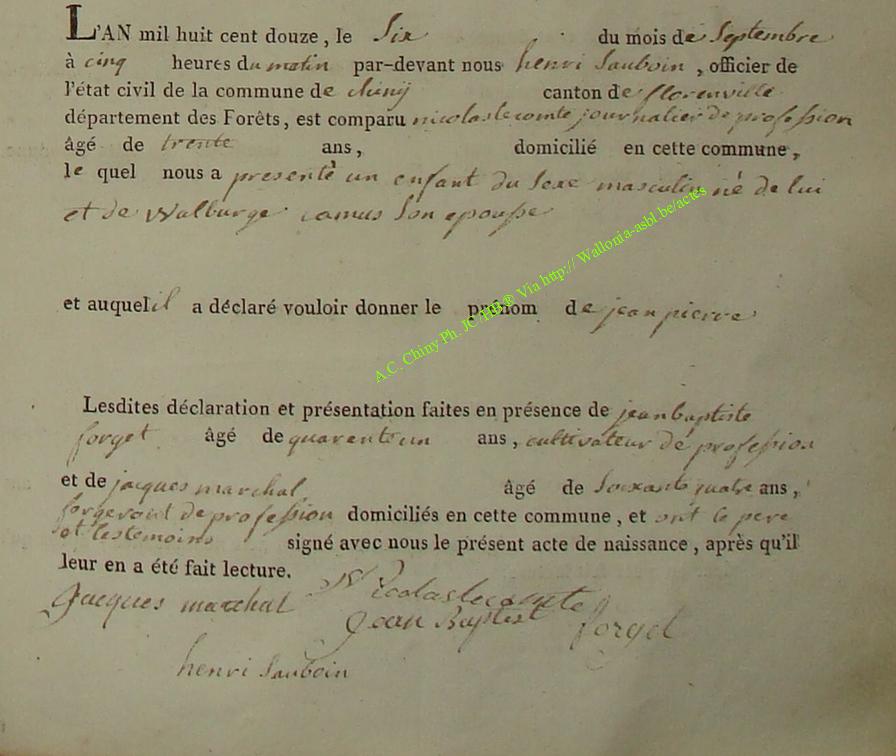 L'AN mil huit cent douze, le Six du mois de Septembre
à cinq heures du matin par-devant nous henri Sauboin, officier de
l'état civil de la commune de chiny canton de florenville
département des Forêts, est comparu nicolas lecomte journalier de profession
âgé de trente ans, domicilié en cette commune,
le quel nous a presentè un enfant du Sexe masculin né de lui
et de Walburge camus Son epousse
et auquel il a déclaré vouloir donner le prénom de jean pierre
Lesdites déclaration et présentation faites en présence de jean baptiste
forget âgé de quarente un ans, cultivateur de profession
et de jacques marchal âgé de Soixante quatre ans,
forgeront de profession domiciliés en cette commune, et ont le pere
et les temoins signé avec nous le présent acte de naissance, après qu'il
leur en a été fait lecture.
Jacques marchal Nicolas lecomte
Jean Baptist forget
henri Sauboin
A.C. Chiny Ph. JC /HB® Via http:// Wallonia-asbl.be/actes